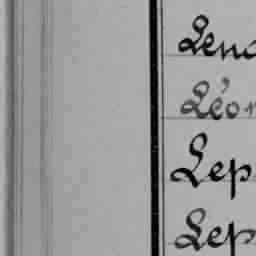 Lenc
Léon
Lep
Lep